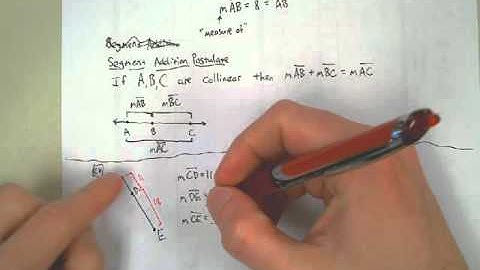 mAB = 8 = AB
"measure of"
Segment
Segment Addition Postulate
If A, B, C are collinear then mAB + mBC = mAC
mAB mBC
A B C
mAC
Ex)
D
18
E
mCD = 11
mDE
mCE =